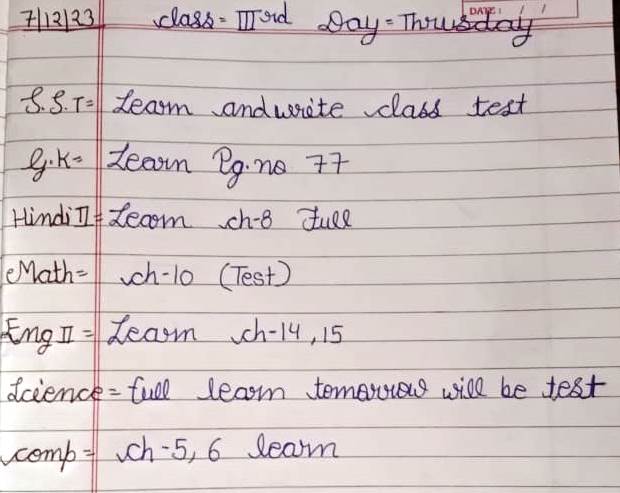 DATE: / /
7/12/23 class = IIIrd Day = Thrusday
S.S.T = Learn and write class test
G.K = Learn Pg.no 77
Hindi II = Learn ch-8 Full
Math = ch-10 (Test)
Eng II = Learn ch-14, 15
Science = full learn tomorrow will be test
comp = ch-5, 6 learn